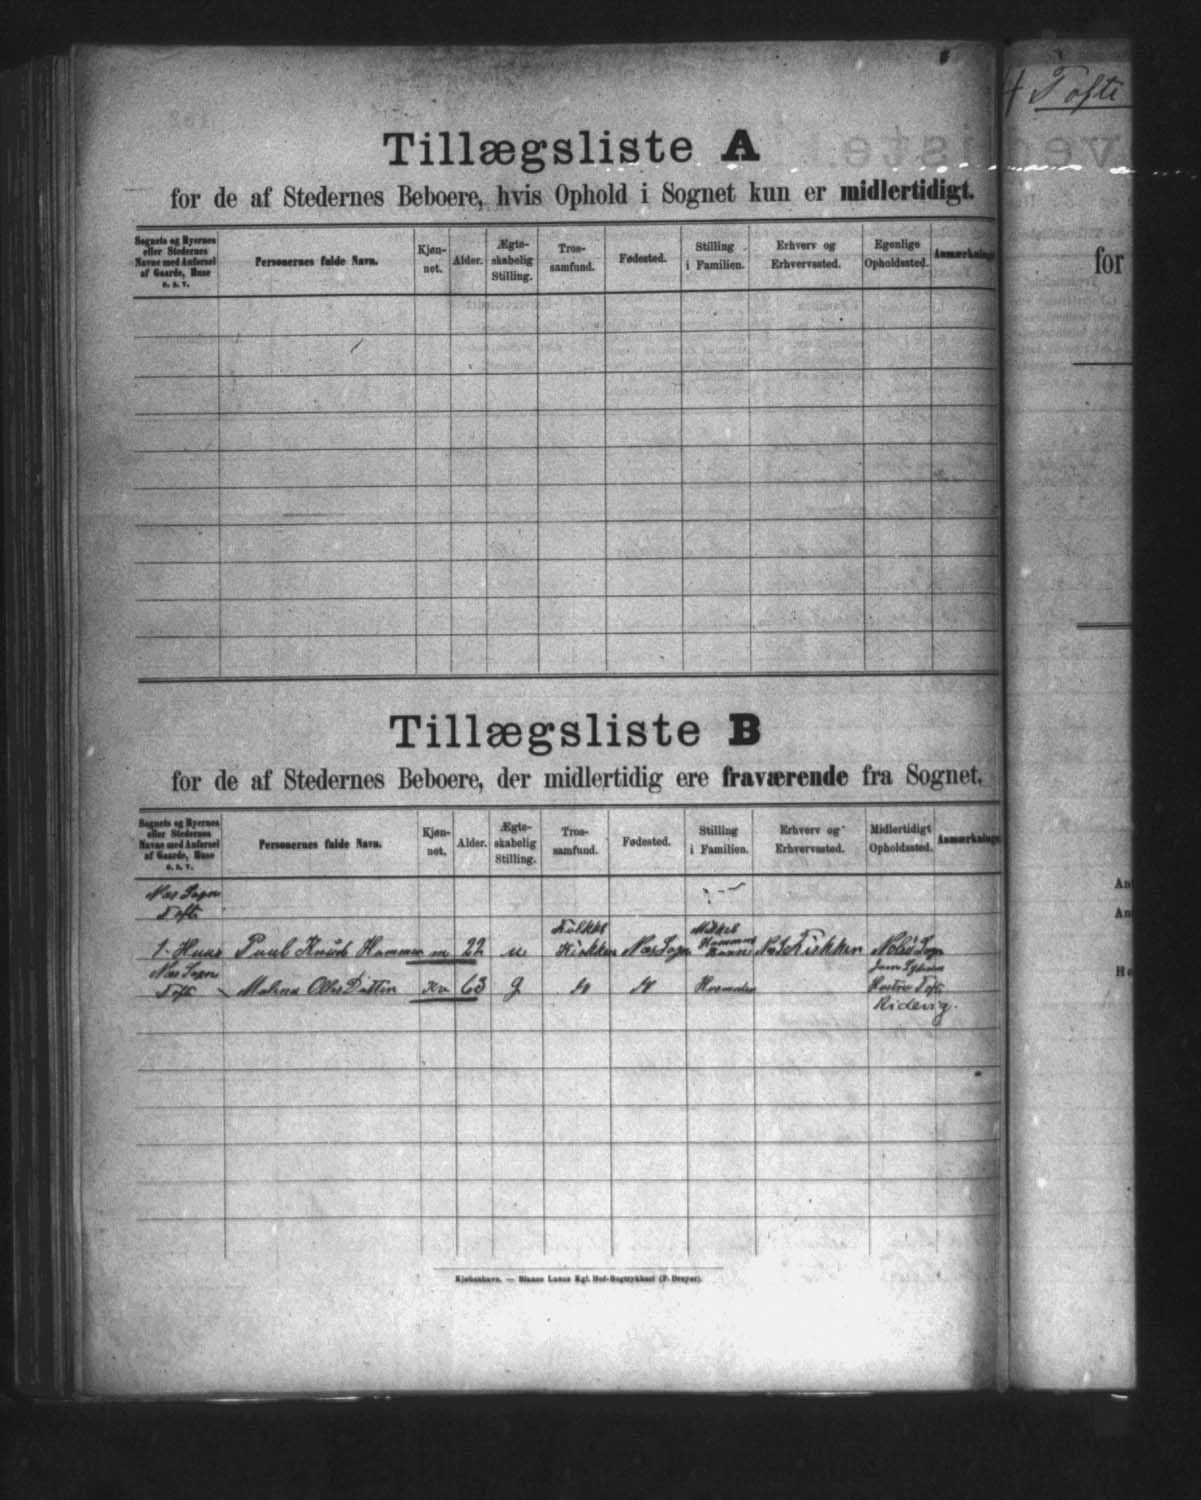 Tillægsliste A
for de af Stedernes Beboere, hvis Ophold i Sognet kun er midlertidigt.
Sognets og Byernes
eller Stedernes
Navne med Anførsel
af Gaarde, Huse
o. s. v.
Personernes fulde Navn.
Kjøn-
net.
Alder.
Ægte-
skabelig
Stilling.
Tros-
samfund.
Fødested.
Stilling
i Familien.
Erhverv og
Erhvervssted.
Egenlige
Opholdssted.
Anmærkninge
Tillægsliste B
for de af Stedernes Beboere, der midlertidig ere fraværende fra Sognet.
Sognets og Byernes
eller Stedernes
Navne med Anførsel
af Gaarde, Huse
o. s. v.
Personernes fulde Navn.
Kjøn-
net.
Alder.
Ægte-
skabelig
Stilling.
Tros-
samfund.
Fødested.
Stilling
i Familien.
Erhverv og
Erhvervssted.
Midlertidigt
Opholdssted.
Anmærkninge
Næs Sogn
Tofte
1. Huus Knud Hammer m 22 u Folkke Kirkken Næs Sogn Fiskken Sogn
Næs Sogn
Tofte Malena Kv 63 g do do Husmoder Tofte
Ridevig.
Kjøbenhavn. — Bianco Lunos Kgl. Hof-Bogtrykkeri (F. Dreyer).
Tofte
for
An
An